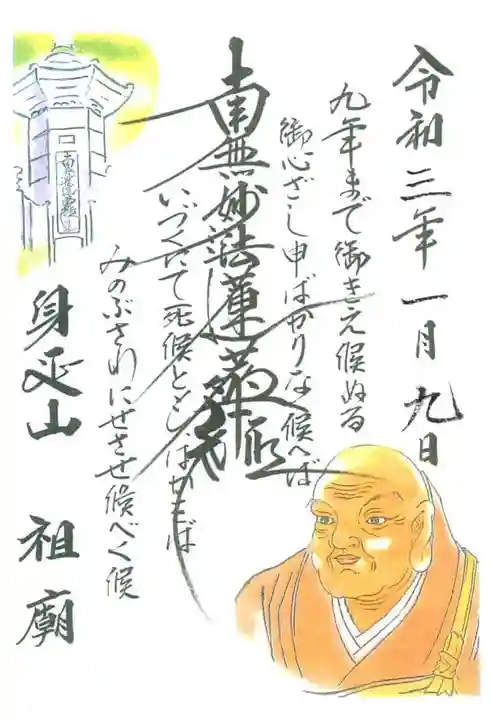 令和三年一月九日
九年まで御きえ候ぬる
御心ざし申ばかりなく候へば
いづくにて死候とも はかをば
みのぶさわにせさせ候べく候
南無妙法蓮華経
身延山 祖廟